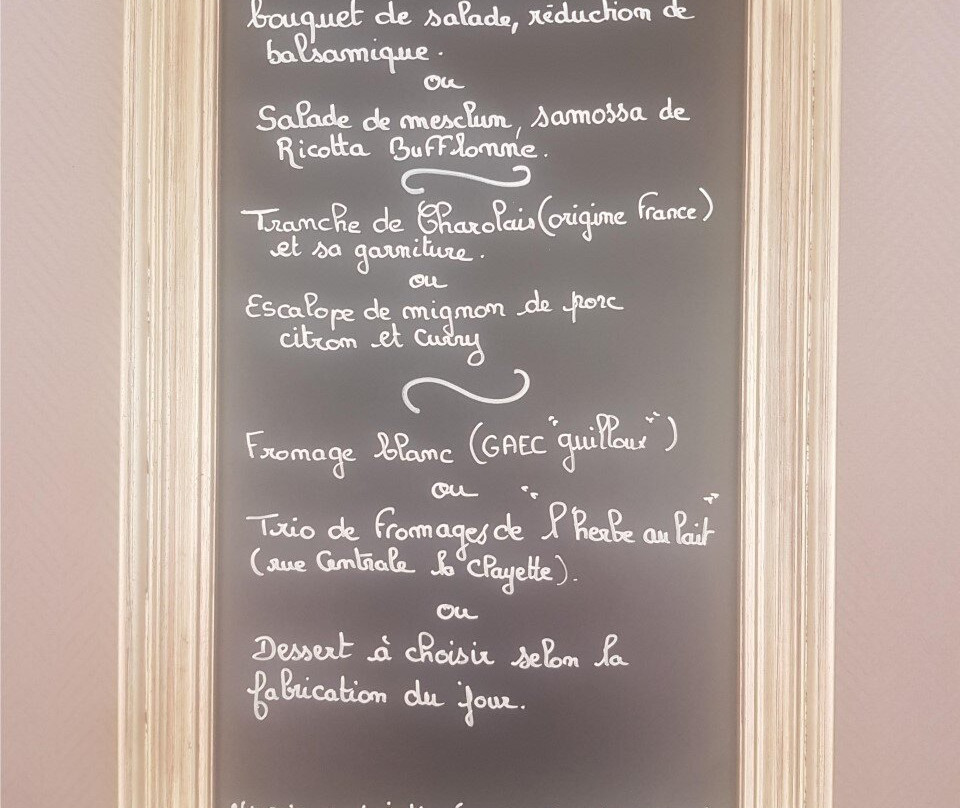 bouquet de salade, réduction de
balsamique.
ou
Salade de mesclun, samossa de
Ricotta Bufflonne.
Tranche de Charolais (origine France)
et sa garniture.
ou
Escalope de mignon de porc
citron et curry
Fromage blanc (GAEC "guilloux")
ou
Trio de fromages de "l'herbe au lait"
(rue Centrale la Clayette).
ou
Dessert à choisir selon la
fabrication du jour.